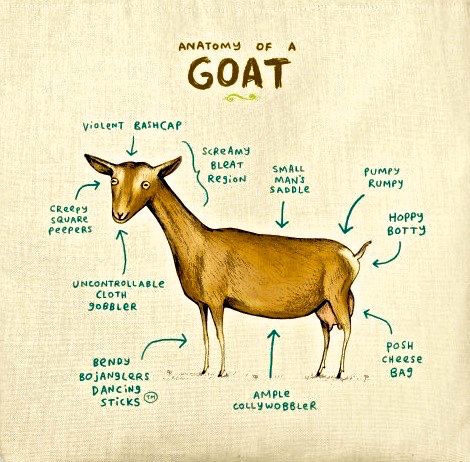 ANATOMY OF A
GOAT
VIOLENT BASHCAP
SCREAMY
BLEAT
REGION
SMALL
MAN'S
SADDLE
PUMPY
RUMPY
HOPPY
BOTTY
CREEPY
SQUARE
PEEPERS
UNCONTROLLABLE
CLOTH
GOBBLER
BENDY
BOJANGLERS
DANCING
STICKS TM
AMPLE
COLLYWOBBLER
POSH
CHEESE
BAG